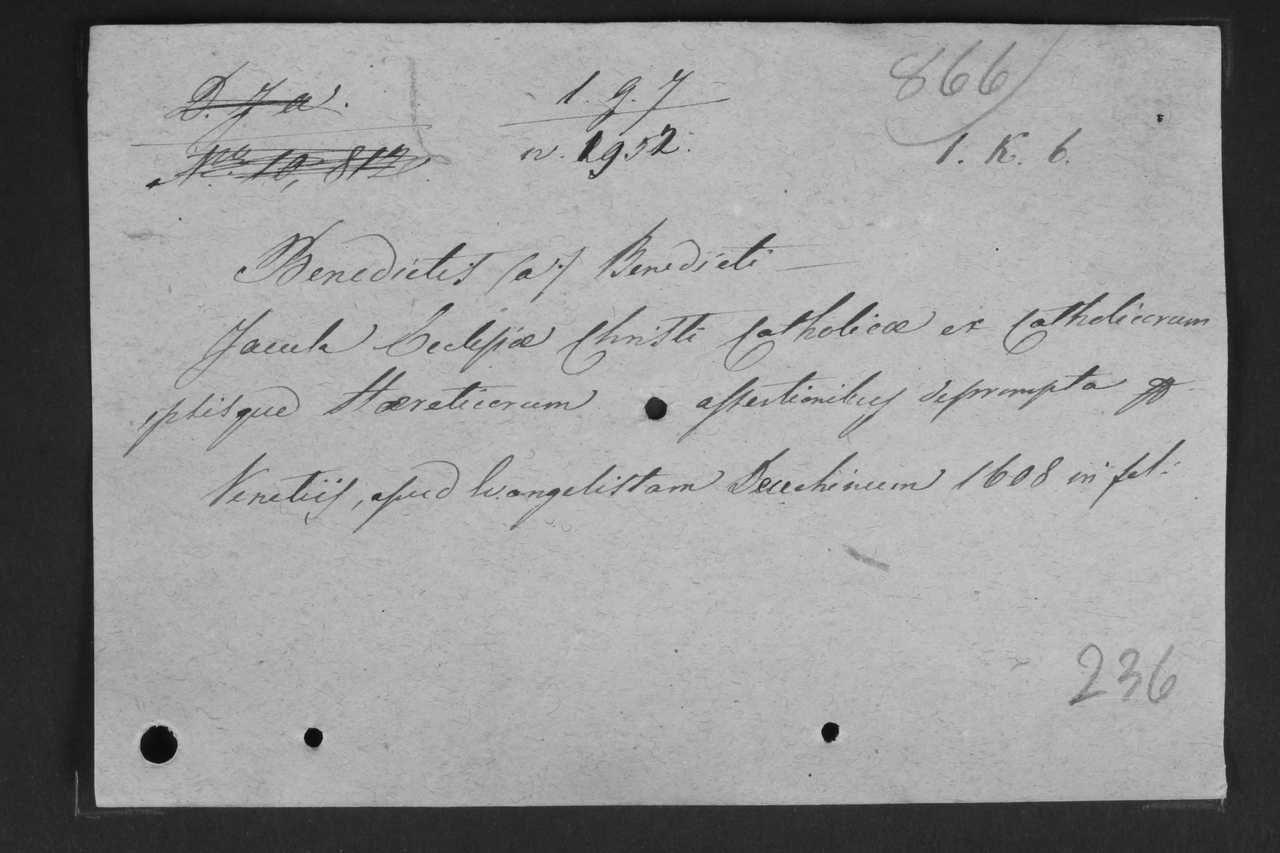 D. J a.
1. g. 7
866
No. 10,812
n. 1952.
1. K. 6.
Benedictis (a) Benedicti —
Jacula Ecclesiæ Christi Catholicæ ex Catholicorum
ipsisque Hæreticorum assertionibus deprompta
Venetiis, apud Evangelistam Deuchinum 1608 in fol:
236